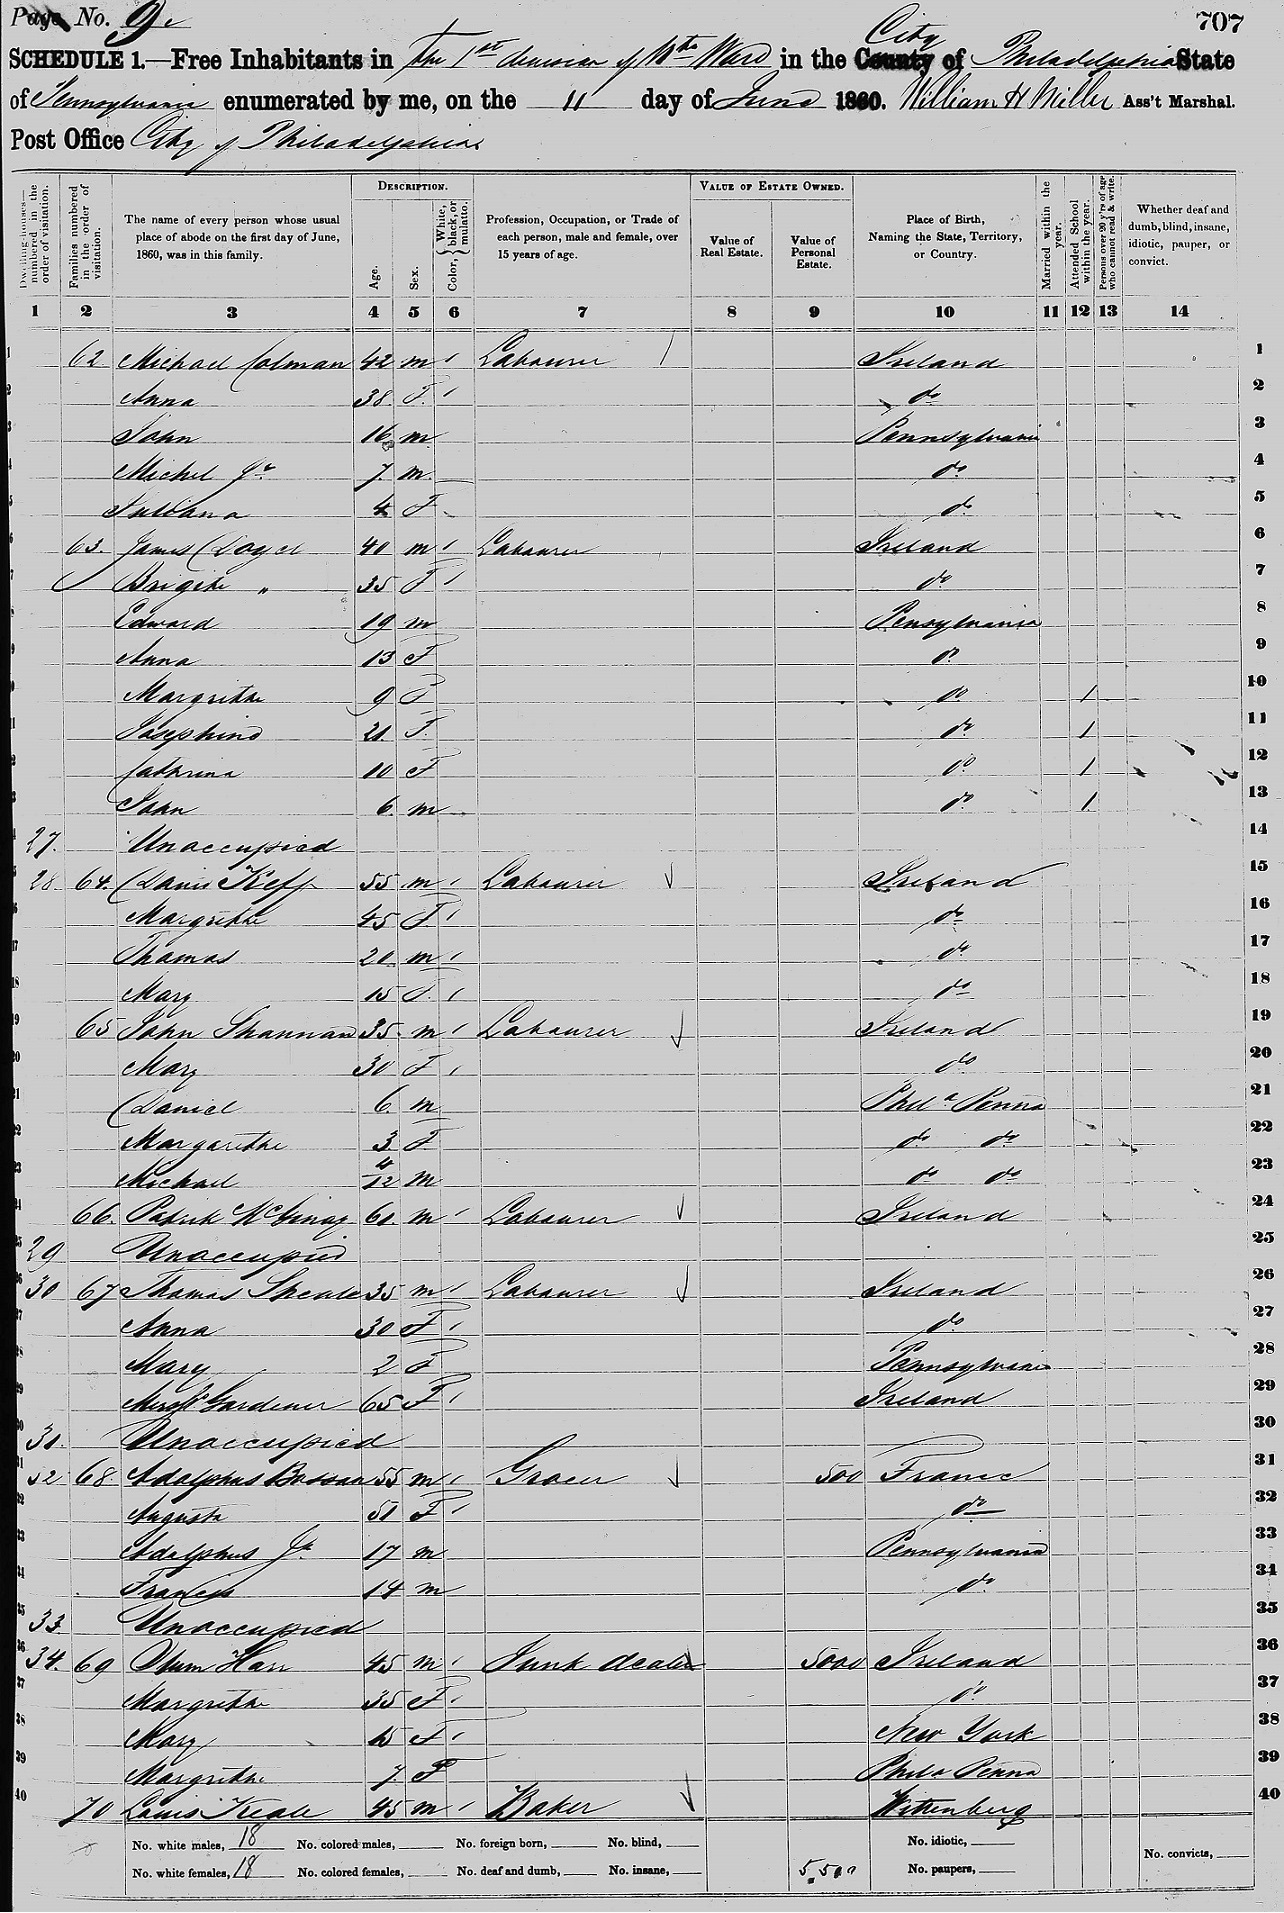 Page No. 9
707
SCHEDULE 1.—Free Inhabitants in The 1st division of Ward in the City County of Philadelphia State
of Pennsylvania enumerated by me, on the 11 day of June 1860. William H Miller Ass't Marshal.
Post Office City of Philadelphia
Dwelling-houses—numbered in the order of visitation.
Families numbered in the order of visitation.
The name of every person whose usual place of abode on the first day of June, 1860, was in this family.
DESCRIPTION.
Age.
Sex.
Color, { White, black, or mulatto.
Profession, Occupation, or Trade of each person, male and female, over 15 years of age.
VALUE OF ESTATE OWNED.
Value of Real Estate.
Value of Personal Estate.
Place of Birth, Naming the State, Territory, or Country.
Married within the year.
Attended School within the year.
Persons over 20 y'rs of age who cannot read & write.
Whether deaf and dumb, blind, insane, idiotic, pauper, or convict.
1 2 3 4 5 6 7 8 9 10 11 12 13 14
1 62 Michael Colman 42 m / Labourer / Ireland 1
2 Anna 38 F. / do 2
3 John 16 m Pennsylvania 3
4 Michel Jr 7 m. do 4
5 Juliana 4 F do 5
6 63. James Doyel 40 m / Labourer Ireland 6
7 Brigitte " 35 F / do 7
8 Edward 19 m Pensylvania 8
9 Anna 13 F do 9
10 Margrithe 9 F do 1 10
11 Josephine 21 F. do 1 11
12 Cathrina 10 F do 1 12
13 John 6 m do 1 13
27. Unaccupied 14
28. 64. Keff 55 m / Labourer Ireland 15
16 Margrithe 45 F / do 16
17 Thomas 20 m / do 17
18 Mary 15 F. / do 18
19 65 John Shannan 35 m / Labourer Ireland 19
20 Mary 30 F / do 20
21 Daniel 6 m Phila Penna 21
22 Margarethe 3 F do do 22
23 Michael 4/12 m do do 23
24 66. Patrik 60 m / Labourer Ireland 24
29 Unaccupied 25
30 67 Thomas 35 m / Labourer Ireland 26
27 Anna 30 F / do 27
28 Mary 2 F Pennsylvania 28
29 Gardener 65 F / Ireland 29
31. Unaccupied 30
32 68 Adolphus Bassan 55 m / Grocer 500 France 31
32 Augusta 51 F / do 32
33 Adolphus Jr 17 m Pennsylvania 33
34 Francis 14 m do 34
33. Unaccupied 35
34. 69 Harr 45 m / Junk dealer 5000 Ireland 36
37 Margrithe 35 F / do 37
38 Mary 15 F / New York 38
39 Margrithe 7 F Phila Penna 39
40 70 Louis 45 m / Baker Wittenberg 40
No. white males, 18 No. colored males, No. foreign born, No. blind, No. idiotic,
No. white females, 18 No. colored females, No. deaf and dumb, No. insane, 5,500 No. paupers, No. convicts,